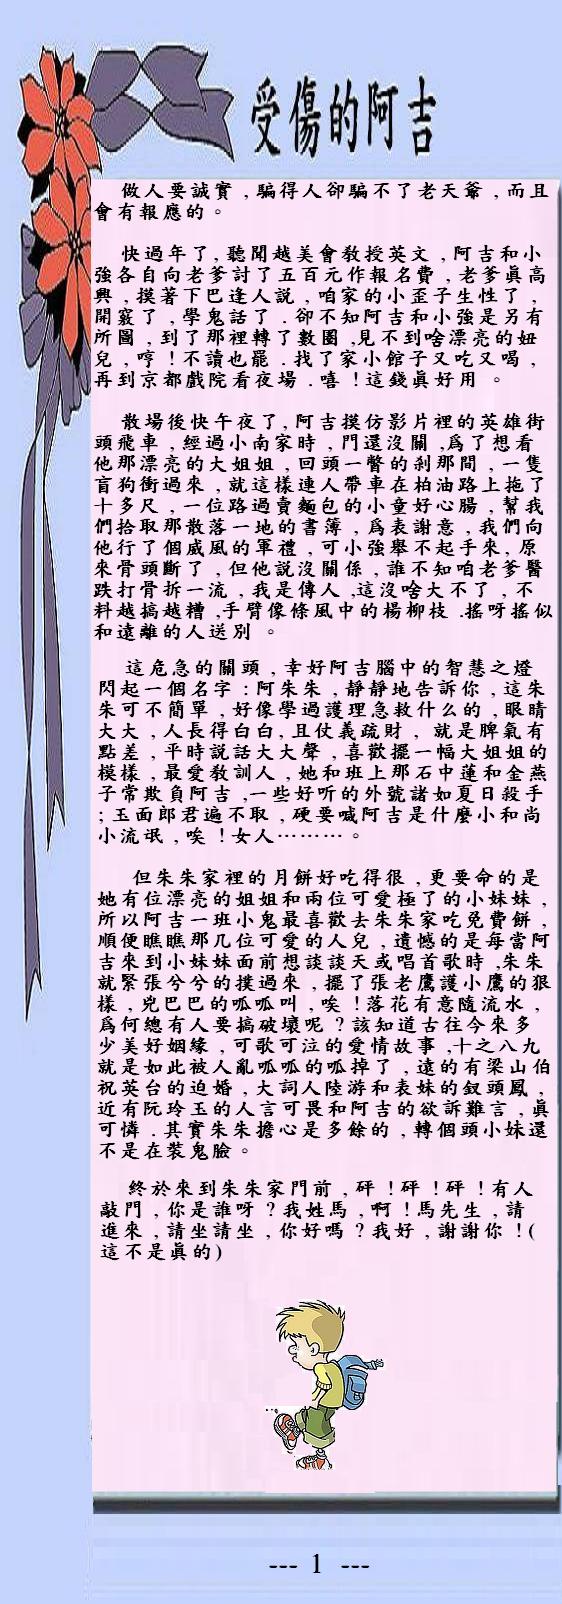 受傷的阿吉
做人要誠實，騙得人卻騙不了老天爺，而且
會有報應的。
快過年了，聽聞越美會教授英文，阿吉和小
強各自向老爹討了五百元作報名費，老爹真高
興，摸著下巴逢人說，咱家的小歪子生性了，
開竅了，學鬼話了．卻不知阿吉和小強是另有
所圖，到了那裡轉了數圈，見不到啥漂亮的妞
兒，哼！不讀也罷．找了家小館子又吃又喝，
再到京都戲院看夜場．嘻！這錢真好用。
散場後快午夜了，阿吉摸仿影片裡的英雄街
頭飛車，經過小南家時，門還沒關，為了想看
他那漂亮的大姐姐，回頭一瞥的剎那間，一隻
盲狗衝過來，就這樣連人帶車在柏油路上拖了
十多尺，一位路過賣麵包的小童好心腸，幫我
們拾取那散落一地的書簿，為表謝意，我們向
他行了個威風的軍禮，可小強舉不起手來，原
來骨頭斷了，但他說沒關係，誰不知咱老爹醫
跌打骨拆一流，我是傳人，這沒啥大不了，不
料越搞越糟，手臂像條風中的楊柳枝．搖呀搖似
和遠離的人送別。
這危急的關頭，幸好阿吉腦中的智慧之燈
閃起一個名字：阿朱朱，靜靜地告訴你，這朱
朱可不簡單，好像學過護理急救什么的，眼睛
大大，人長得白白，且仗義疏財，就是脾氣有
點差，平時說話大大聲，喜歡擺一幅大姐姐的
模樣，最愛教訓人，她和班上那石中蓮和金燕
子常欺負阿吉，一些好听的外號諸如夏日殺手
；玉面郎君遍不取，硬要喊阿吉是什麼小和尚
小流氓，唉！女人………。
但朱朱家裡的月餅好吃得很，更要命的是
她有位漂亮的姐姐和兩位可愛極了的小妹妹，
所以阿吉一班小鬼最喜歡去朱朱家吃免費餅，
順便瞧瞧那几位可愛的人兒，遺憾的是每當阿
吉來到小妹妹面前想談談天或唱首歌時，朱朱
就緊張兮兮的撲過來，擺了張老鷹護小鷹的狠
樣，兇巴巴的呱呱叫，唉！落花有意隨流水，
為何總有人要搞破壞呢？該知道古往今來多
少美好姻緣，可歌可泣的愛情故事，十之八九
就是如此被人亂呱呱的呱掉了，遠的有梁山伯
祝英台的迫婚，大詞人陸游和表妹的釵頭鳳，
近有阮玲玉的人言可畏和阿吉的欲訴難言，真
可憐．其實朱朱擔心是多餘的，轉個頭小妹還
不是在裝鬼臉。
終於來到朱朱家門前，砰！砰！砰！有人
敲門，你是誰呀？我姓馬，啊！馬先生，請
進來，請坐請坐，你好嗎？我好，謝謝你！(
這不是真的)
--- 1 ---